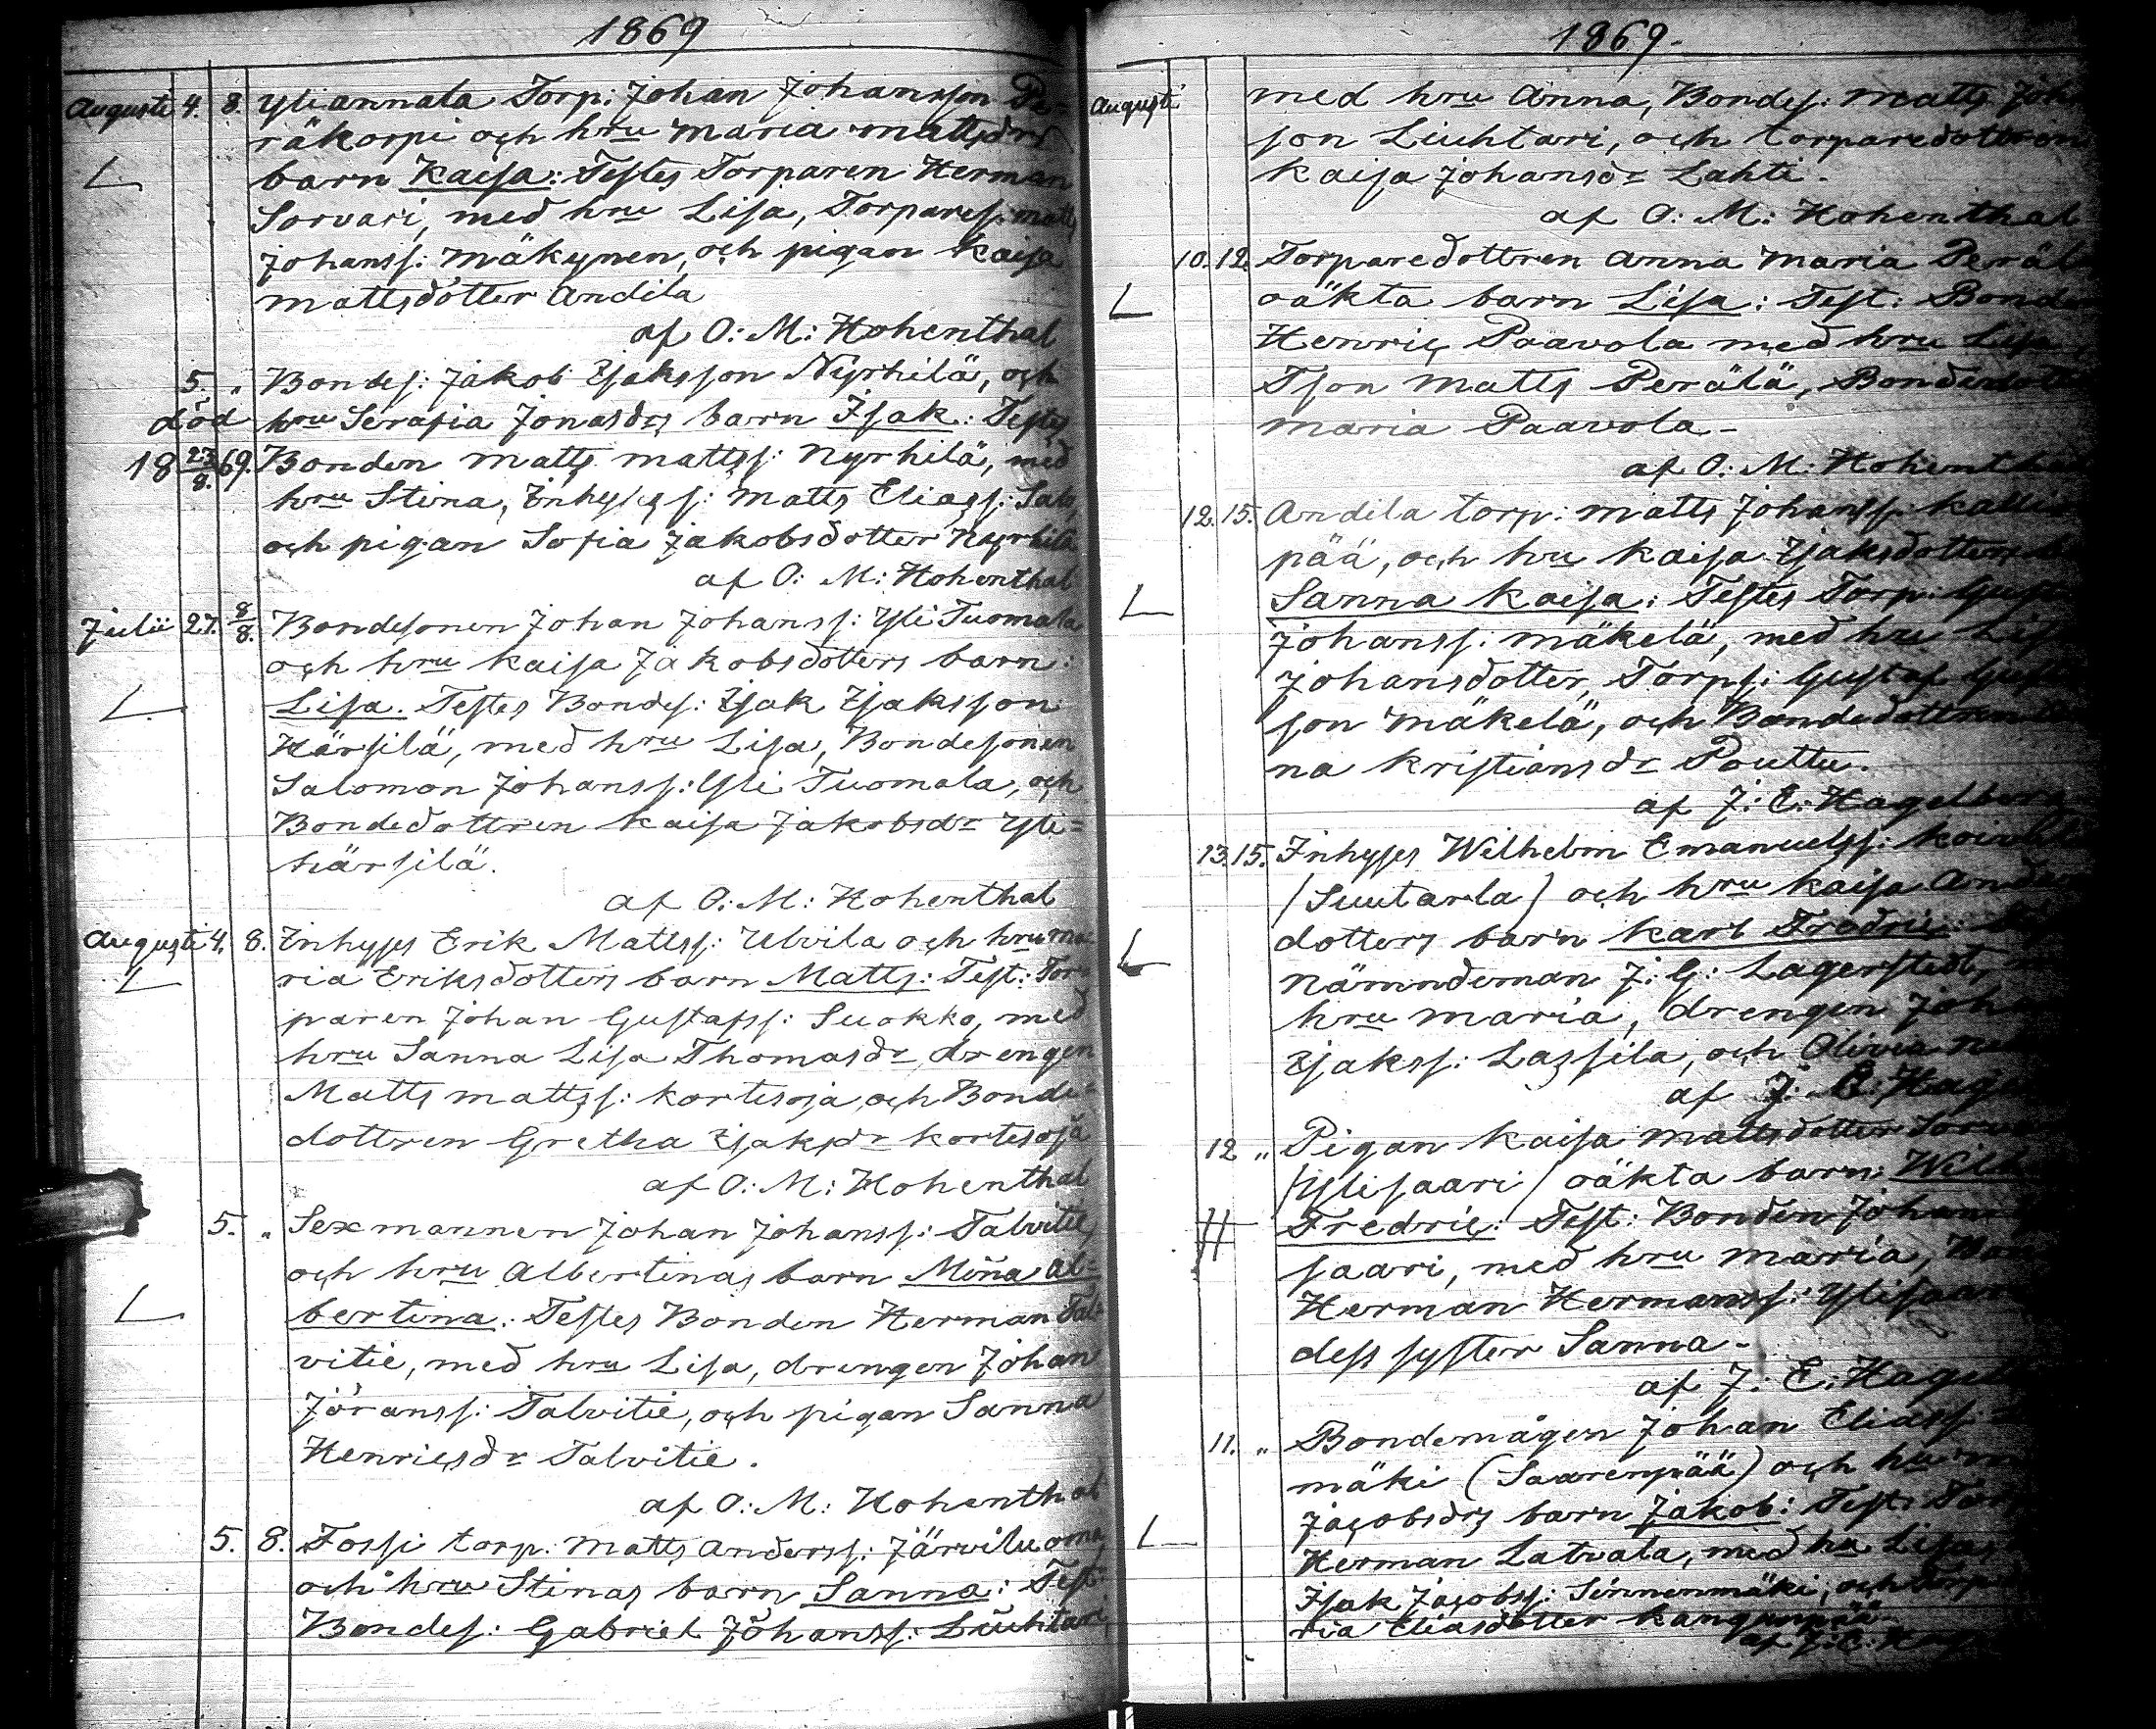 1869
Augusti 4. 8. Yliannala Torp: Johan Johansson Pe=
räkorpi och hru Maria Mattsdrs
barn Kaisa: Testes Torparen Herman
Sorvari, med hru Lisa, Torpares: Matts
Johanss: Mäkynen, och pigan Kaisa
Mattsdotter Andila
af O: M: Hohenthal
5. „ Bondes: Jakob Isaksson Nyrhilä, och
död hru Serafia Jonasdrs barn Isak: Testes
18 23/8. 69. Bonden Matts Mattss: Nyrhilä, med
hru Stina, Inhyses s: Matts Eliass:
och pigan Sofia Jakobsdotter Nyrhilä
af O: M: Hohenthal
Julii 27. 8/8. Bondesonen Johan Johanss: Yli Tuomala
och hru Kaisa Jakobsdotters barn:
Lisa. Testes Bondes: Isak Isaksson
Härsilä, med hru Lisa, Bondesonen
Salomon Johanss: Yli Tuomala, och
Bondedottren Kaisa Jakobsdr Yli=
härsilä.
af O: M: Hohenthal
Augusti 4. 8. Inhyses Erik Mattss: Ulvila och hru Ma
ria Eriksdotters barn Matts: Test: Tor
paren Johan Gustafss: Suokko, med
hru Sanna Lisa Thomasdr, drengen
Matts Mattss: Kortesoja, och Bonde=
dottren Gretha Isaksdr Kortesoja
af O: M: Hohenthal
5. „ Sexmannen Johan Johanss: Talvitie,
och hru Albertinas barn Mina Al=
bertina: Testes Bonden Herman Tal=
vitie, med hru Lisa, drengen Johan
Jöranss: Talvitie, och pigan Sanna
Henricsdr Talvitie.
af O: M: Hohenthal
5. 8. Fossi torp: Matts Anderss: Järviluoma
och hru Stinas barn Sanna: Test:
Bondes: Gabriel Johanss: Liuhtari
1869.
Augusti med hru Anna, Bondes: Matts Joh
son Liuhtari, och torparedottren
Kaisa Johansdr Lahti.
af O: M: Hohenthal
10. 12. Torparedottren Anna Maria Peräl
oäkta barn Lisa: Test: Bond
Henric Paavola med hru Lisa
Tson Matts Perälä,
Maria Paavola.
af O: M: Hohenth
12. 15. Andila torp: Matts Johanss: Kallio
pää, och hru Kaisa Isaksdotters
Sanna Kaisa: Testes Torp: Gust
Johanss: Mäkelä, med hru Lis
Johansdotter, Torps: Gustaf
son Mäkelä, och Bondedottren
na Kristiansdr Pouttu.
af J: E: Hagelberg
13. 15. Inhyses Wilhelm Emanuelss:
(Suutarla) och hru Kaisa And
dotters barn Karl Fredric:
Nämndeman J: G: Lagerstedt,
hru Maria, drengen Joh
Isakss: Lassila, och Olivia
af J: E: Hage
12 „ Pigan Kaisa Mattsdotter
(Ylisaari) oäkta barn: Wilh
Fredric: Test: Bonden Johan
saari, med hru Maria,
Herman Hermanss: Ylisaari
dess syster Sanna.
af J: E: Hagel
11. „ Bondemågen Johan Eliass:
mäki (Saarenpää) och hru
Jacobsdrs barn Jakob: Test:
Herman Latvala, med hru Lisa
Isak Jacobss: Sinnenmäki, och Torp
ria Eliasdotter Kangenpää
af J: E: